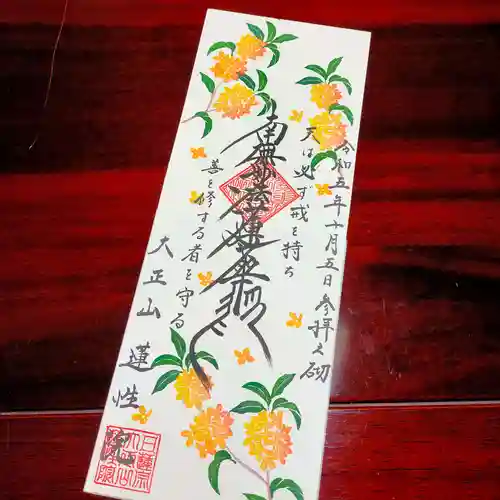 令和五年十月五日参拝之砌
天は必ず戒を持ち
南無妙法蓮華経
善を修する者を守る
大正山 蓮性院